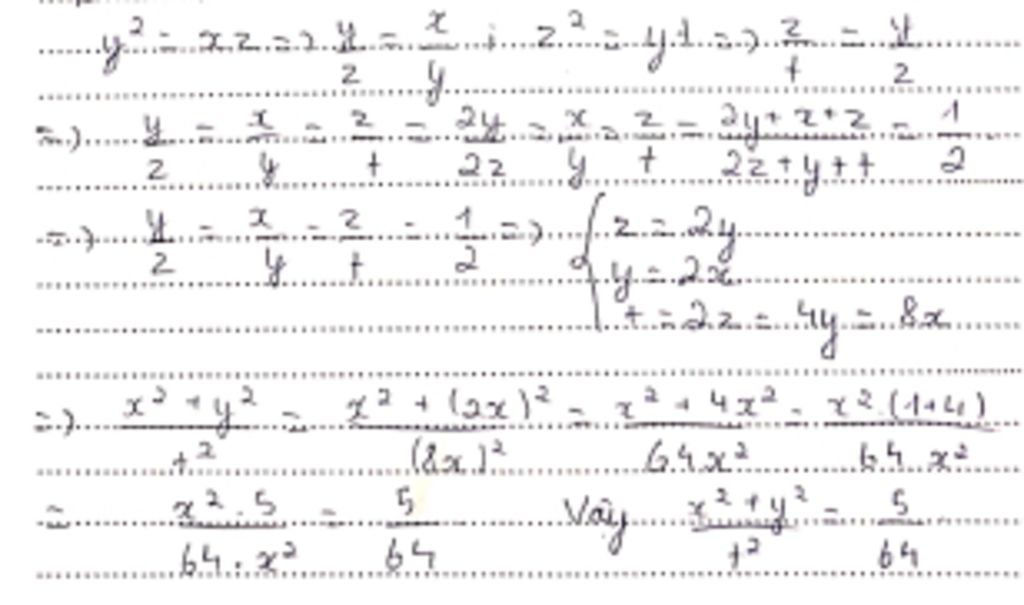 y² = xz => y/z = x/y ; z² = yt => z/t = y/z
=> y/z = x/y = z/t = 2y/2z = x/y = z/t = (2y + x + z)/(2z + y + t) = 1/2
=> y/z = x/y = z/t = 1/2 => { z = 2y
y = 2x
t = 2z = 4y = 8x
=> (x² + y²)/t² = (x² + (2x)²)/(8x)² = (x² + 4x²)/64x² = x².(1+4)/64.x²
= x².5/64.x² = 5/64 Vậy (x² + y²)/t² = 5/64